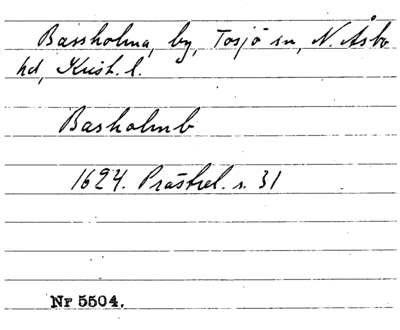 Bassholma, by, Tosjö sn, N. Åsbo
hd, Krist. l.
Basholmb
1624. Prästrel. s. 31
Nr 5504.